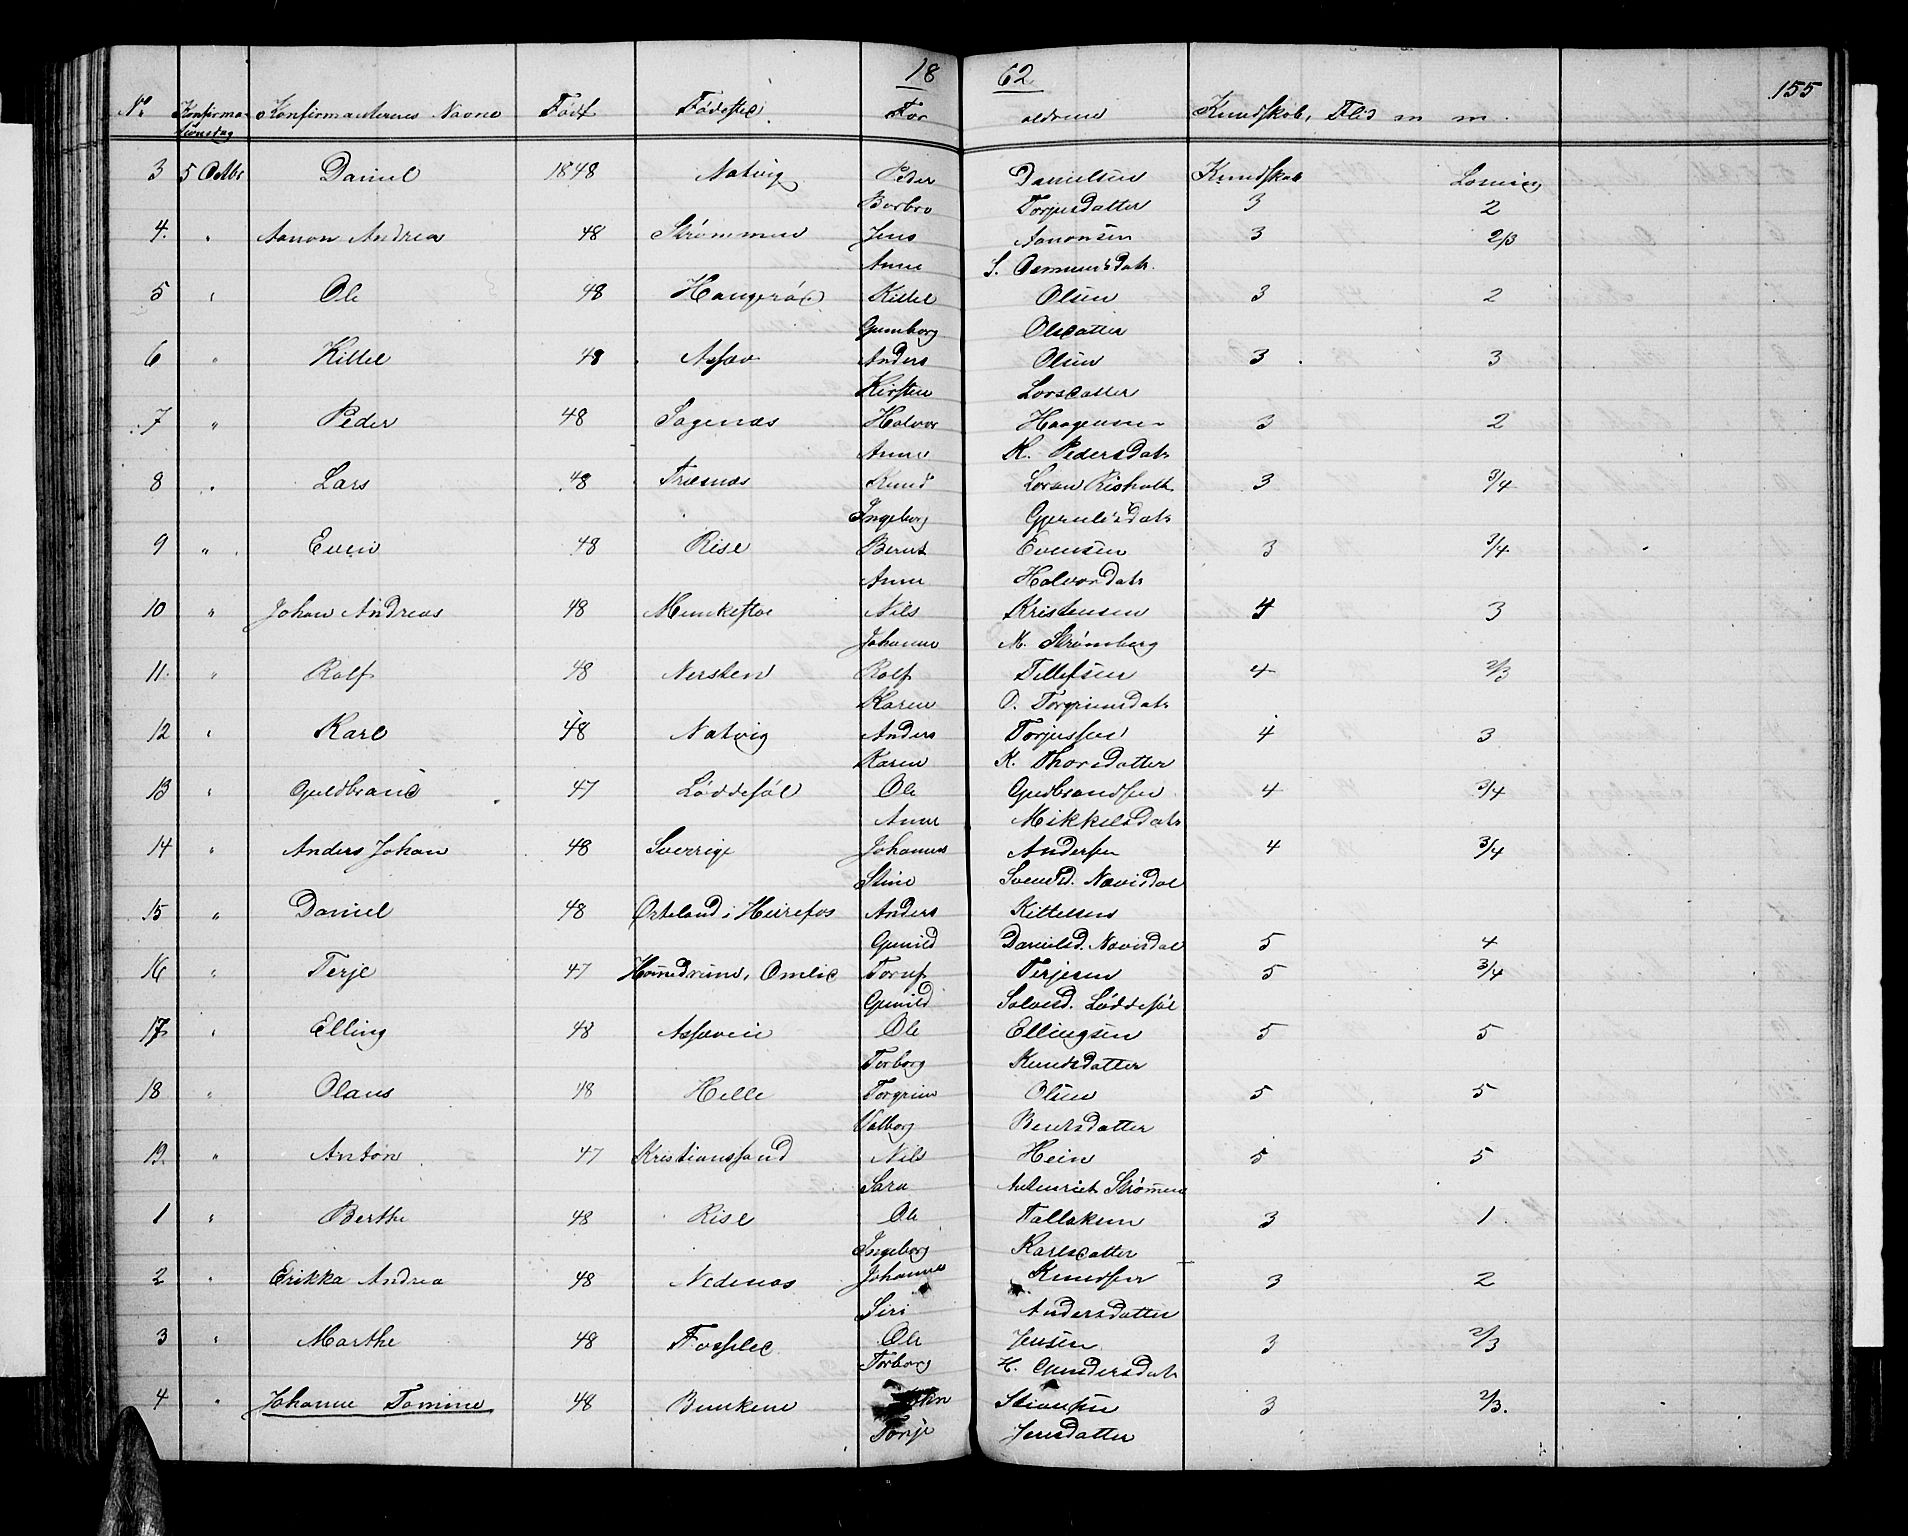 18 62 155
No. Konfirma- Konfirmanternes Navne Født Fødested For ældrene Kundskab, Flid m m.
tionsdag
3 5 Octbr Daniel 1848 Natvig Peder Danielsen Kundskab Læsning
Barbro Torjusdatter 3 2
4. " Aanon Andrea 48 Strømmen Jens Aanonsen 3 2/3
Anne S. Osmunsdatr.
5 " Ole 48 Kittel Olsen 3 2
Gunborg Olsdatter
6 " Kittel 48 Assæv Anders Olsen 3 3
Kirsten Larsdatter
7 " Peder 48 Sagenæs Halvor Haagensen 3 2
Anne K. Pedersdatr
8 " Lars 48 Træsnæs Knud Larsen Risholt 3 3/4
Ingeborg
9 " Even 48 Rise Bernt Evensen 3 3/4
Anne Halvordatr
10 " Johan Andreas 48 Nils Kristensen 4 3
Johanne M. Strømberg
11. " Rolf 48 Nersten Rolf Tellefsen 4 2/3
Karen O. Torgrimsdatr
12 " Karl 48 Natvig Anders Torjussen 4 3
Karen K. Thorsdatter
13 " Guldbrand 47 Løddesøl Ole Gudbrandsen 4 3/4
Anne Mikkelsdatr
14 " Anders Johan 48 Sverrige Johannes Andersen 4 3/4
Stine Svensd. Nævisdal
15 " Daniel 48 Anders Kittelsen
Gunild Danielsd. Nævisdal 5 4
16 " Terje 47 Omlie Terjesen 5 3/4
Gunild Salvesd. Løddesøl
17 " Elling 48 Assævie Ole Ellingsen 5 5
Torborg Knudsdatter
18 " Olaus 48 Helle Torgrim Olsen 5 5
Valborg Berntsdatter
19. " Anton 47 Kristianssand Nils Hein 5 5
Sara Strømmen
1 " Berthe 48 Rise Ole Tallaksen 3 1.
Ingeborg Karlsdatter
2 " Erikka Andrea 48 Nedenæs Johannes Knudsen 3 2
Siri Andersdatter
3 " Marthe 48 Fosslie Ole Jensen 3 2/3
Torborg H. Gundersdatr
4 " Johanne Tomine 48 Stiansen 3 2/3.
Torje Jensdatter